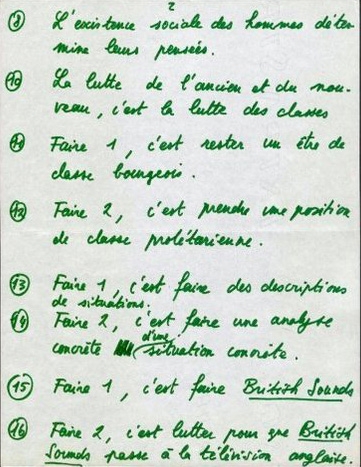 2
⑧ L'existence sociale des hommes déter-
mine leurs pensées.
⑩ La lutte de l'ancien et du nou-
veau, c'est la lutte des classes
⑪ Faire 1, c'est rester un être de
classe bourgeois.
⑫ Faire 2, c'est prendre une position
de classe prolétarienne.
⑬ Faire 1, c'est faire des descriptions
de situations.
⑭ Faire 2, c'est faire une analyse
concrète d'une situation concrète.
⑮ Faire 1, c'est faire British Sounds
⑯ Faire 2, c'est lutter pour que British
Sounds passe à la télévision anglaise.